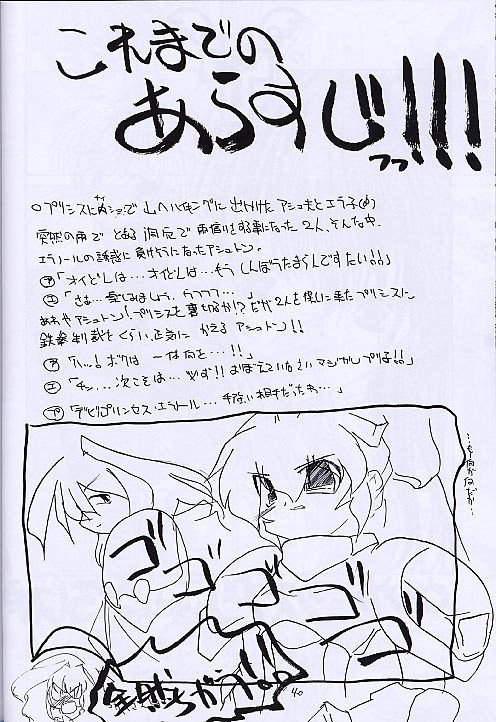 これまでの
あらすじっっ!!!
○プリンスにナイショで山へハイキングに出かけたアシュ夫とエラ子(め)
突然の雨で とある 洞窟で 雨宿りする事になった 2人、そんな中、
エラノールの誘惑に負けそうになったアシュトン。
ア「オイどんは…オイどんは…もう しんぼうたまらんですたい!!」
エ「さあ…楽しみましょう、ウフフフ…」
ああやアシュトン!プリンスを裏切るか!?だが2人を捜しに来たプリンスに
鉄拳制裁をくらい、正気に かえる アシュトン!!
ア「ハ…!ボクは 一体何を…!!」
エ「チッ…次こそは… 必ず!!おぼえていなさいマジカルプリ子!!」
プ「デビプリンセス・エラノール… 手強い相手だったわ…」
…も何がなんだか…
ゴゴゴゴゴ
全然ちがう!!
40